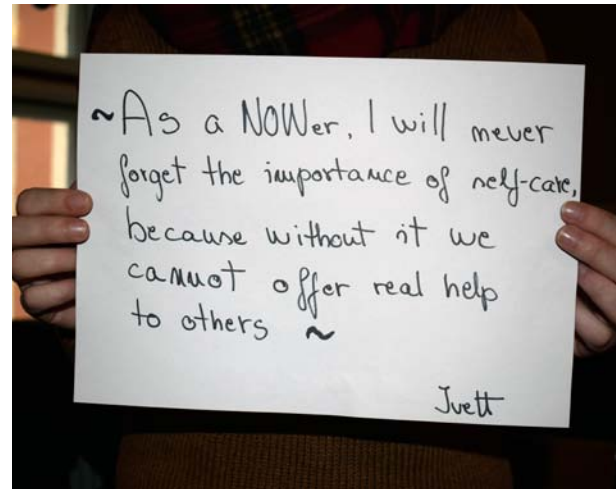 ~As a NOWer, I will never
forget the importance of self-care,
because without it we
cannot offer real help
to others ~
Ivett